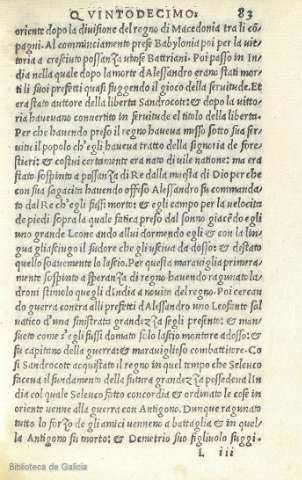 QVINTODECIMO: 83
oriente dopo la diuisione del regno di Macedonia tra li cō
pagni. Al comminciamento prese Babylonia poi per la vit
toria a cresciuto possanza vinse Battriani. Poi passo in In
dia nella quale dopo la morte d'Alessandro erano stati mor
ti li suoi prefetti quasi fuggendo il gioco della seruitude. Et
era stato auttore della liberta Sandrocoto: & dopo la vitto
ria haueuano conuertito in seruitude el titolo della liberta.
Per che hauendo preso il regno haueua messo sotto sua ser-
uitu il popolo ch'egli haueua tratto della signoria de fore-
stieri: & costui certamente era nato di vile natione: ma era
stato sospinto a possanza di Re dalla maesta di Dio per che
con sua sagacita hauendo offeso Alessandro su commanda
to dal Re ch'egli fussi morto: & egli campo per la velocita
de piedi sopra la quale fatica preso dal sonno giacēdo egli
vno grande Leone ando allui dormendo egli & con la lin
gua gli asciugo il sudore che gli vsciua da dosso: & destato
quello soauemente lo lascio. Per questa marauiglia primera
mente sospinto a speranza di regno hauendo ragunato la
droni stimolo quegli d'India a nouita del regno. Poi cercan
do guerra contra alli prefetti d'Alessandro uno Leofante sal
uatico d'una sinistrata grandezza segli presento: & man
sueto come s'egli fussi domato solo lascio montare adosso: &
su capitano della guerra: & marauiglioso combattitore. Co
si Sandrocoto acquistato il regno in quel tempo che Seleuco
faceua il fundamento della futura grandezza possedeua l'In
dia col quale Seleuco fatto concordia & ordinato le cose in
oriente uenne alla guerra con Antigono. Dunque ragunato
tutto lo sforzo de gli amici uenneno a battaglia & in quel-
la Antigono fu morto: & Demetrio suo figliuolo fuggi.
L iii
Biblioteca de Galicia